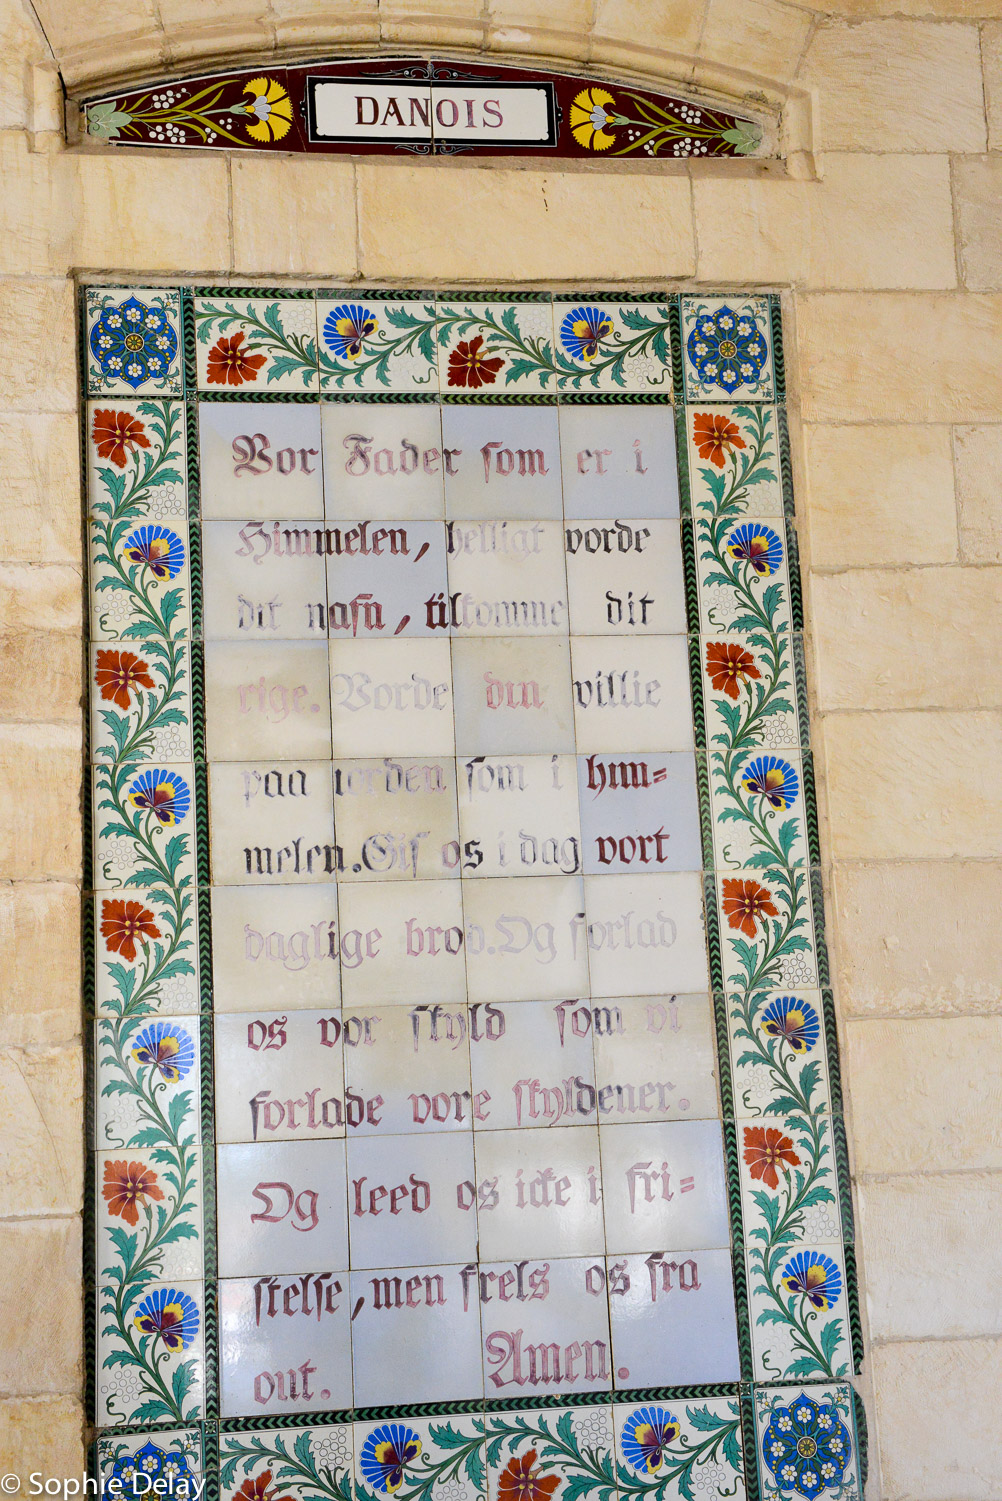 DANOIS
Vor Fader som er i
Himmelen, helligt vorde
dit nafn, tilkomme dit
rige. Vorde din villie
paa iorden som i him=
melen. Gif os i dag vort
daglige brod. Og forlad
os vor skyld som vi
forlade vore skyldener.
Og leed os icke i fri=
stelse, men frels os fra
out. Amen.
© Sophie Delay